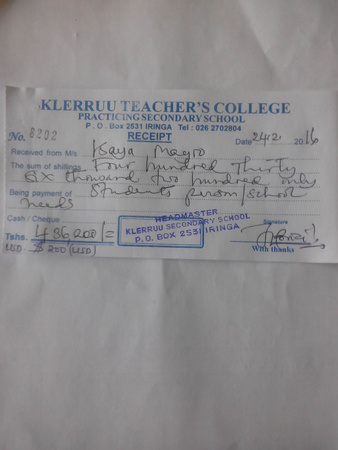 KLERRUU TEACHER'S COLLEGE
PRACTICING SECONDARY SCHOOL
P.O. Box 2531 IRINGA Tel: 026 2702804
RECEIPT
No. 8202 Date 24/2 2016
Received from M/s Kaya Magro
The sum of shillings Four hundred Thirty
Six thousand two hundred only
Being payment of Students person/school
needs
Cash / Cheque
Tshs. 436,200/=
USD - $ 200 (USD)
HEADMASTER
KLERRUU SECONDARY SCHOOL
P.O. BOX 2531 IRINGA
Signature
With thanks